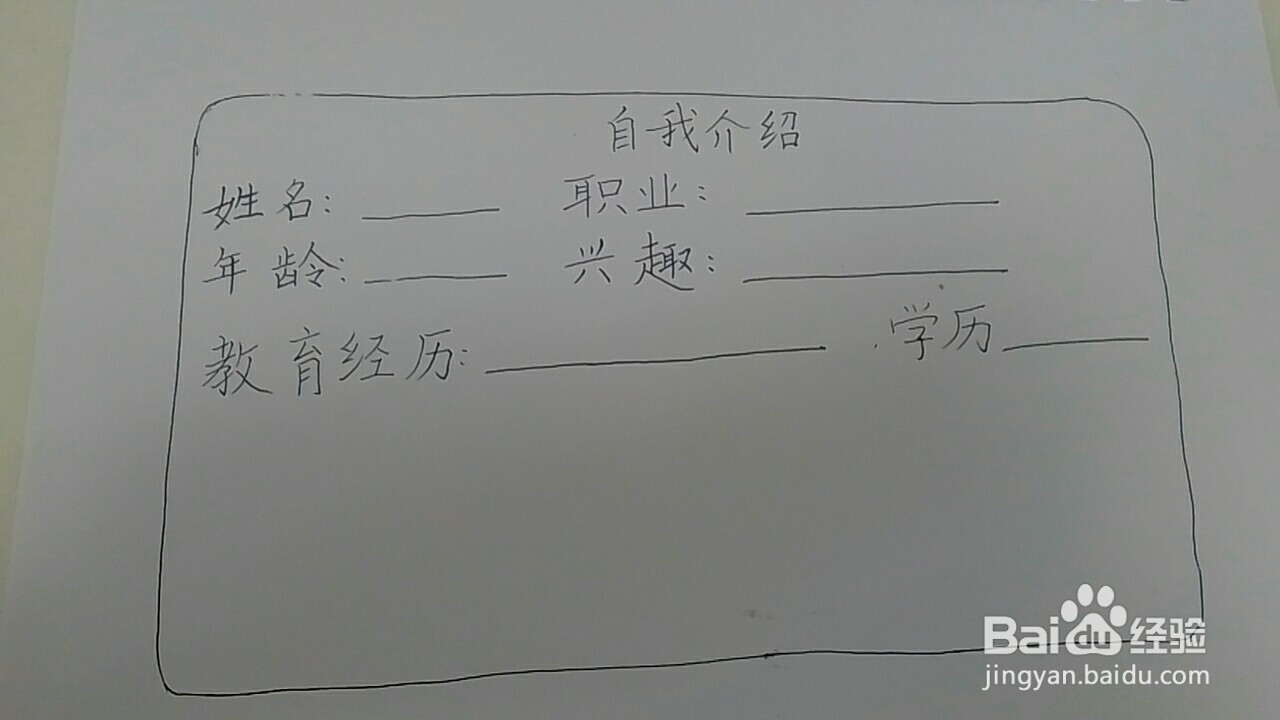 自我介绍
姓名:____ 职业:________
年龄:____ 兴趣:________
教育经历:__________ 学历____
Baidu经验
jingyan.baidu.com